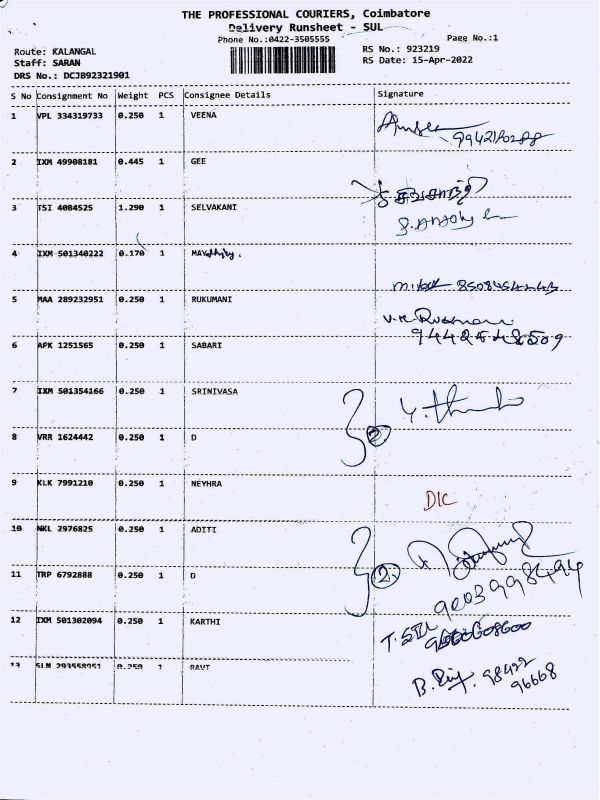 THE PROFESSIONAL COURIERS, Coimbatore
Delivery Runsheet - SUL
Phone No.:0422-3505555
Page No.:1
Route: KALANGAL
RS No.: 923219
Staff: SARAN
RS Date: 15-Apr-2022
DRS No.: DCJB92321901
S No Consignment No Weight PCS Consignee Details Signature
1 VPL 334319733 0.250 1 VEENA
2 IXM 49908181 0.445 1 GEE
3 TSI 4084525 1.290 1 SELVAKANI
4 IXM 501340222 0.170 1
5 MAA 289232951 0.250 1 RUKUMANI
9442548509
6 APK 1251565 0.250 1 SABARI
7 IXM 501354166 0.250 1 SRINIVASA
2
8 VRR 1624442 0.250 1 D
9 KLK 7991210 0.250 1 NEYHRA
D/C
10 NKL 2976825 0.250 1 ADITI
2
11 TRP 6792888 0.250 1 D
9003998494
12 IXM 501302094 0.250 1 KARTHI
13 SLM 293558951 0.250 1 RAVI
98422
96668